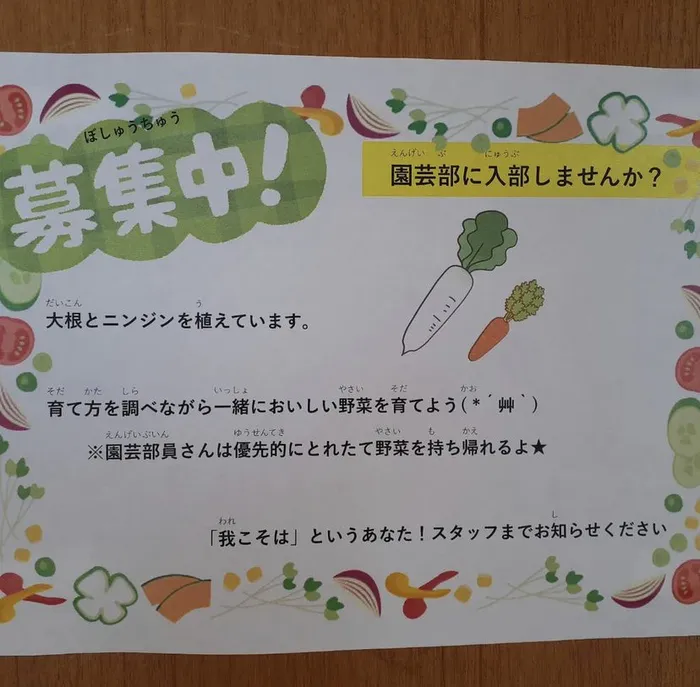 ぼしゅうちゅう
募集中！
えんげい ぶ にゅうぶ
園芸部に入部しませんか？
だいこん う
大根とニンジンを植えています。
そだ かた しら いっしょ やさい そだ かお
育て方を調べながら一緒においしい野菜を育てよう(*´艸｀)
えんげいぶいん ゆうせんてき やさい も かえ
※園芸部員さんは優先的にとれたて野菜を持ち帰れるよ★
われ し
「我こそは」というあなた！スタッフまでお知らせください